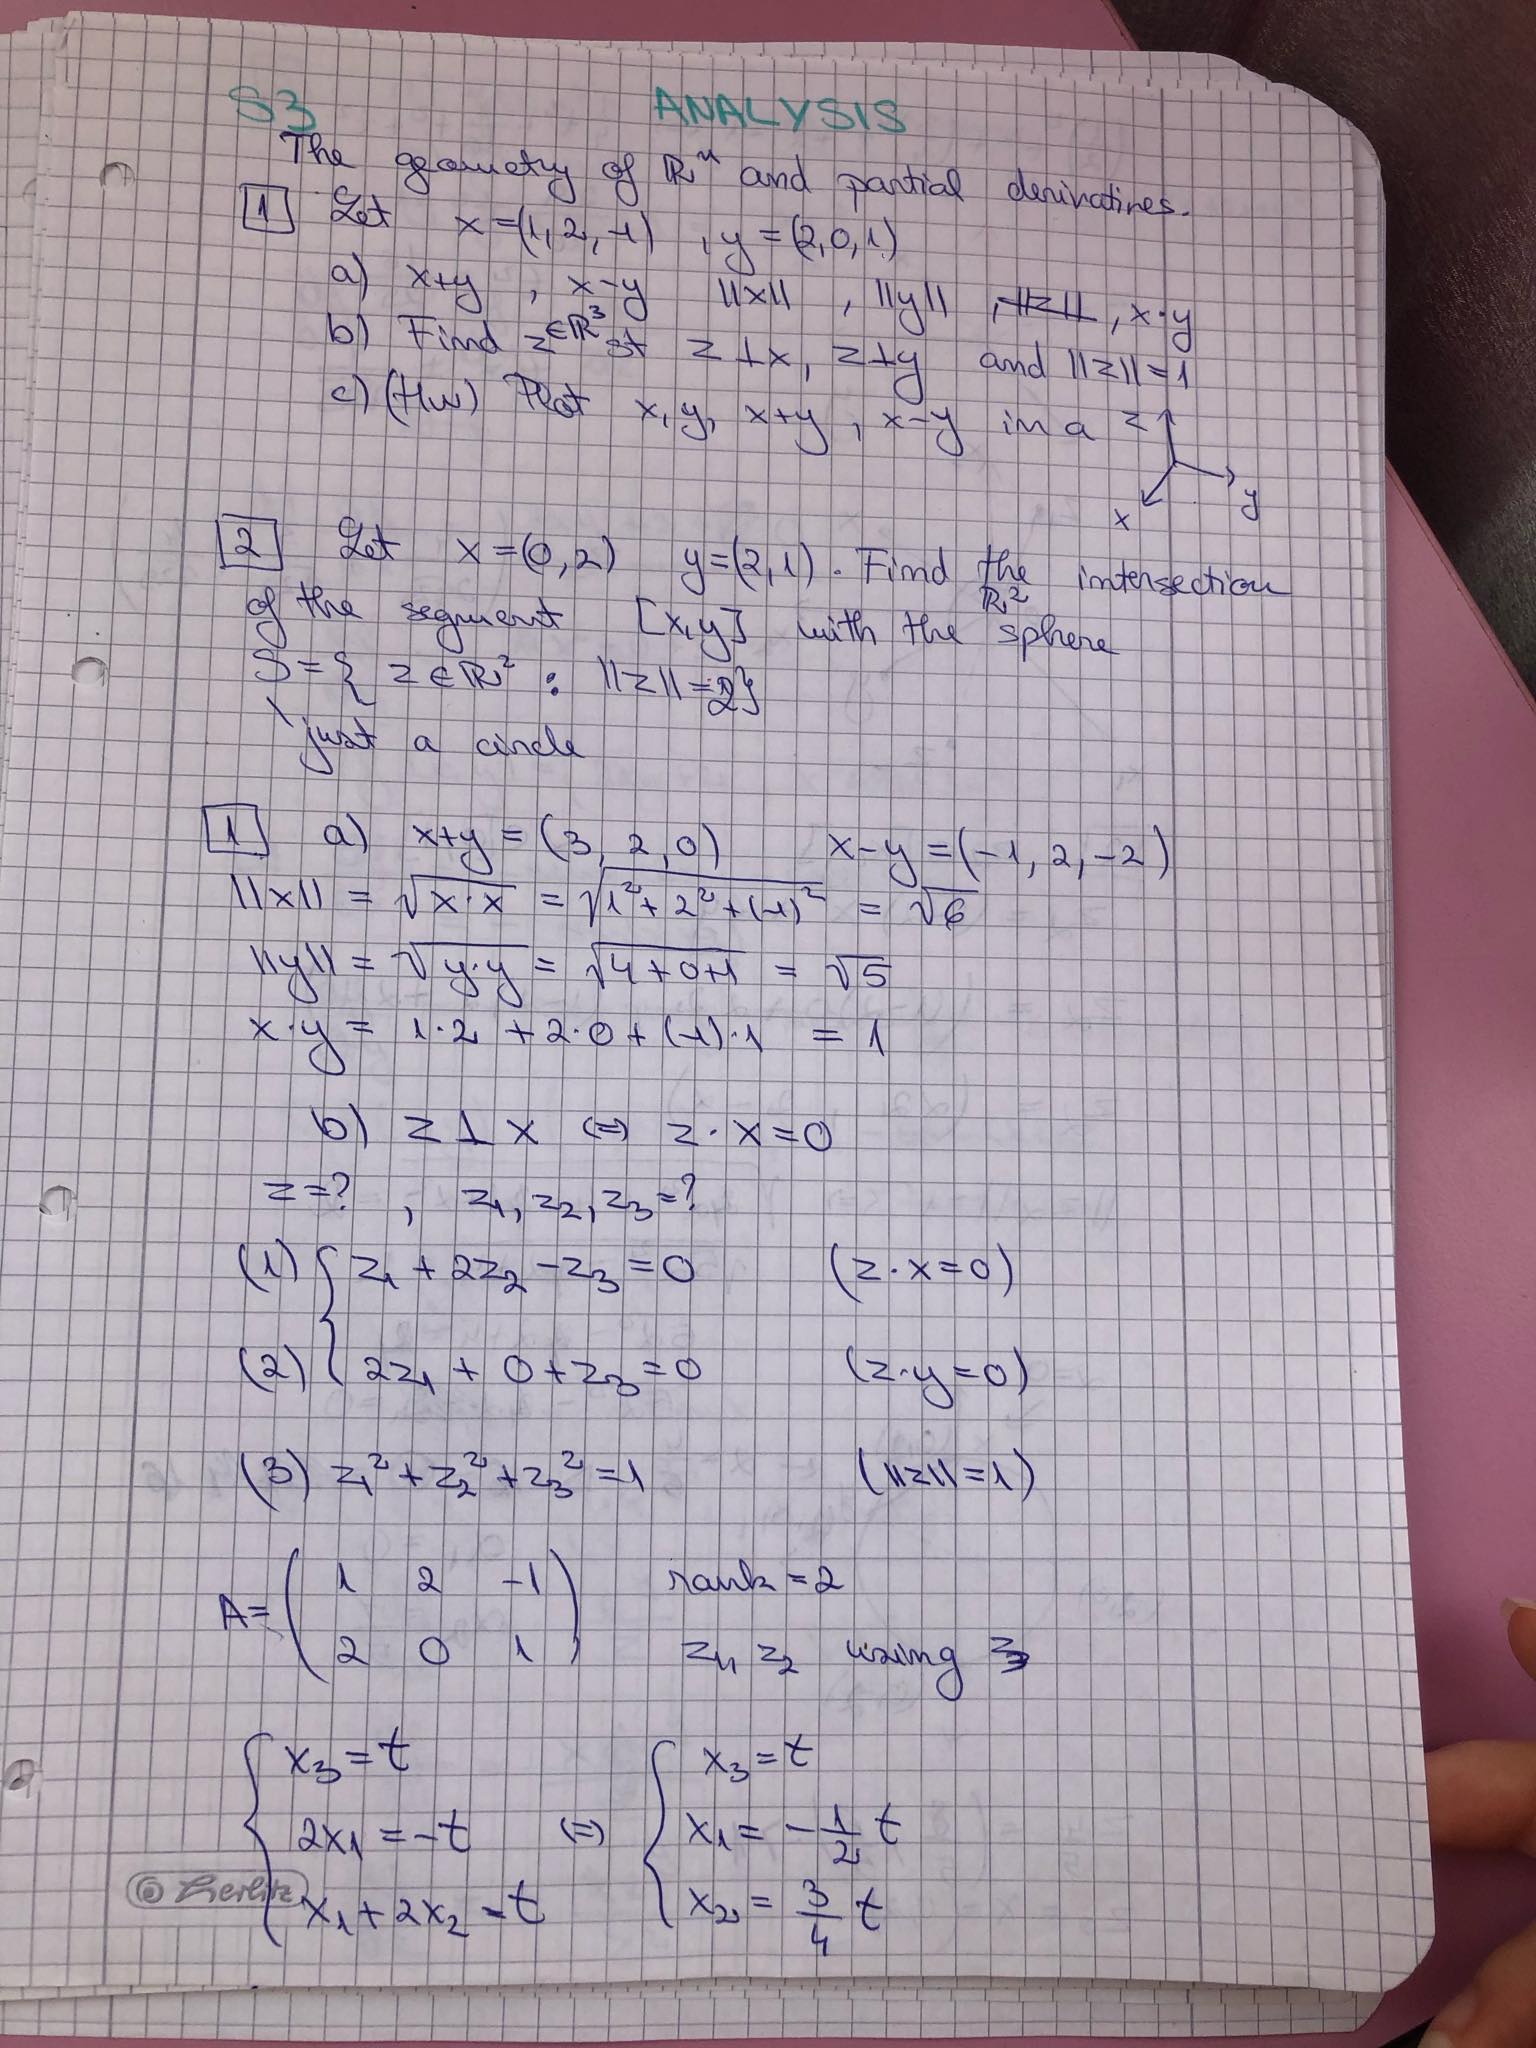 S3 ANALYSIS
The geometry of ℝⁿ and partial derivatives.
1 Let x=(1,2,-1) , y=(2,0,1)
a) x+y , x-y ||x|| , ||y|| , ||z|| , x·y
b) Find z∈ℝ³ st z⊥x, z⊥y and ||z||=1
c) (HW) Plot x, y, x+y, x-y in a z
x y
2 Let x=(0,2) y=(2,1). Find the intersection
of the segment [x,y] with the ℝ² sphere
S={ z∈ℝ² : ||z||=2}
just a circle
1 a) x+y = (3, 2, 0) x-y=(-1, 2, -2)
||x|| = √(x·x) = √(1²+2²+(-1)²) = √6
||y|| = √(y·y) = √(4+0+1) = √5
x·y = 1·2 + 2·0 + (-1)·1 = 1
b) z⊥x ⇔ z·x=0
z=? , z₁, z₂, z₃=?
(1) { z₁ + 2z₂ - z₃ = 0 (z·x=0)
(2) { 2z₁ + 0 + z₃ = 0 (z·y=0)
(3) z₁² + z₂² + z₃² = 1 (||z||=1)
A= ( 1 2 -1 ) rank=2
( 2 0 1 ) z₁, z₂ using z₃
{ x₃ = t { x₃ = t
2x₁ = -t ⇔ x₁ = -1/2 t
© Herlitz
x₁ + 2x₂ = t x₂ = 3/4 t